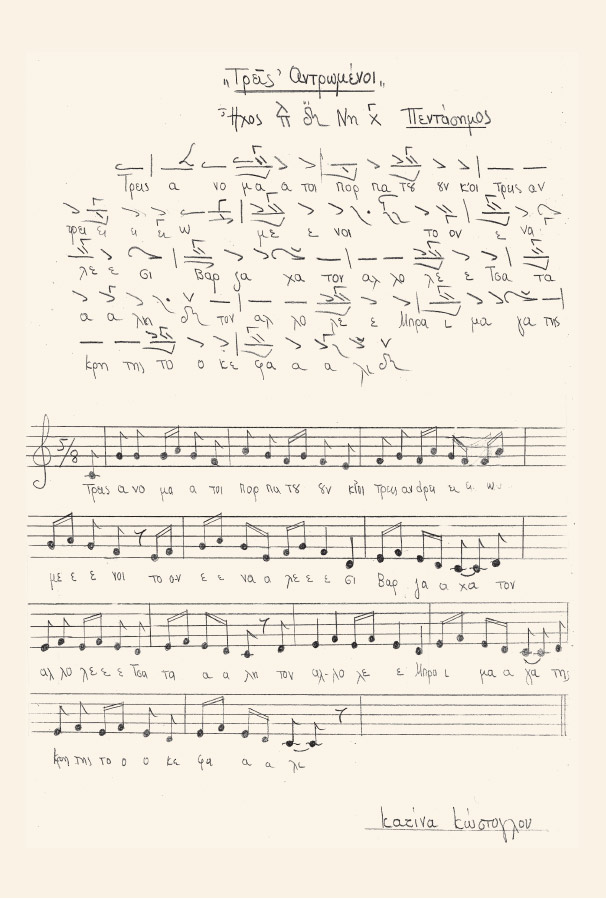 „Τρεῖς Ἀντρωμένοι„
Ἦχος λ π δι Νη χ Πεντάσημος
Τρεις α νο μα α τοι πορ πα του ουν και τρεις αν
τρει ει ει ει ω με ε νοι το ον ε να
λε ε σι Βαρ δα χα τον αλ λο λε ε Τσα τα
α α λη τον αλ λο λε ε Μπρα ι μα γα της
κρη της το ο κε φα α α λι
5/8
Τρεις α νο μα α τοι πορ πα του ουν και τρεις αν δρει ει ει ω
με ε ε νοι το ον ε ε να α λε ε ε σι Βαρ δα α χα τον
αλ λο λε ε ε Τσα τα α α λη τον αλ-λο λε ε Μπρα ι μα α γα της
κρη της το ο ο κε φα α α λι
Κατίνα Κώστογλου